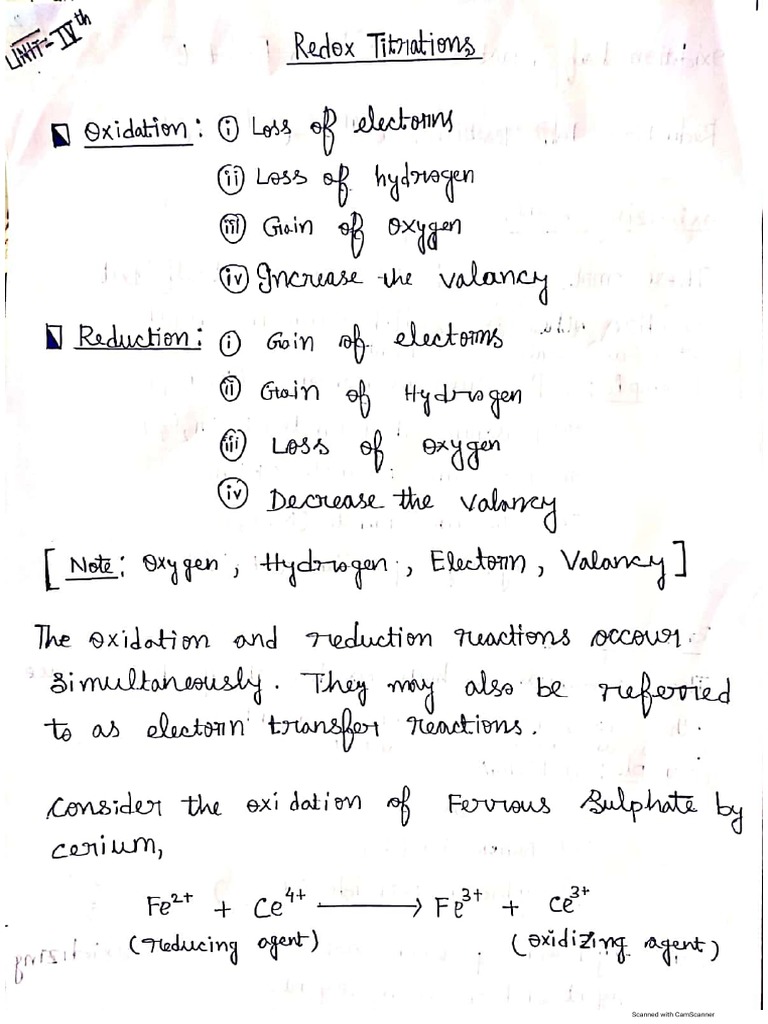 UNIT-IVth
Redox Titrations
Oxidation: (i) Loss of electorns
(ii) Loss of hydrogen
(iii) Gain of oxygen
(iv) Increase the valancy
Reduction: (i) Gain of electorns
(ii) Gain of Hydrogen
(iii) Loss of oxygen
(iv) Decrease the valancy
[Note: Oxygen, Hydrogen, Electorn, Valancy]
The oxidation and reduction reactions occour
simultaneously. They may also be referried
to as electorn transfer reactions.
Consider the oxidation of Ferrous Sulphate by
cerium,
Fe²⁺ + Ce⁴⁺ ⟶ Fe³⁺ + Ce³⁺
(reducing agent) (oxidizing agent)
Scanned with CamScanner